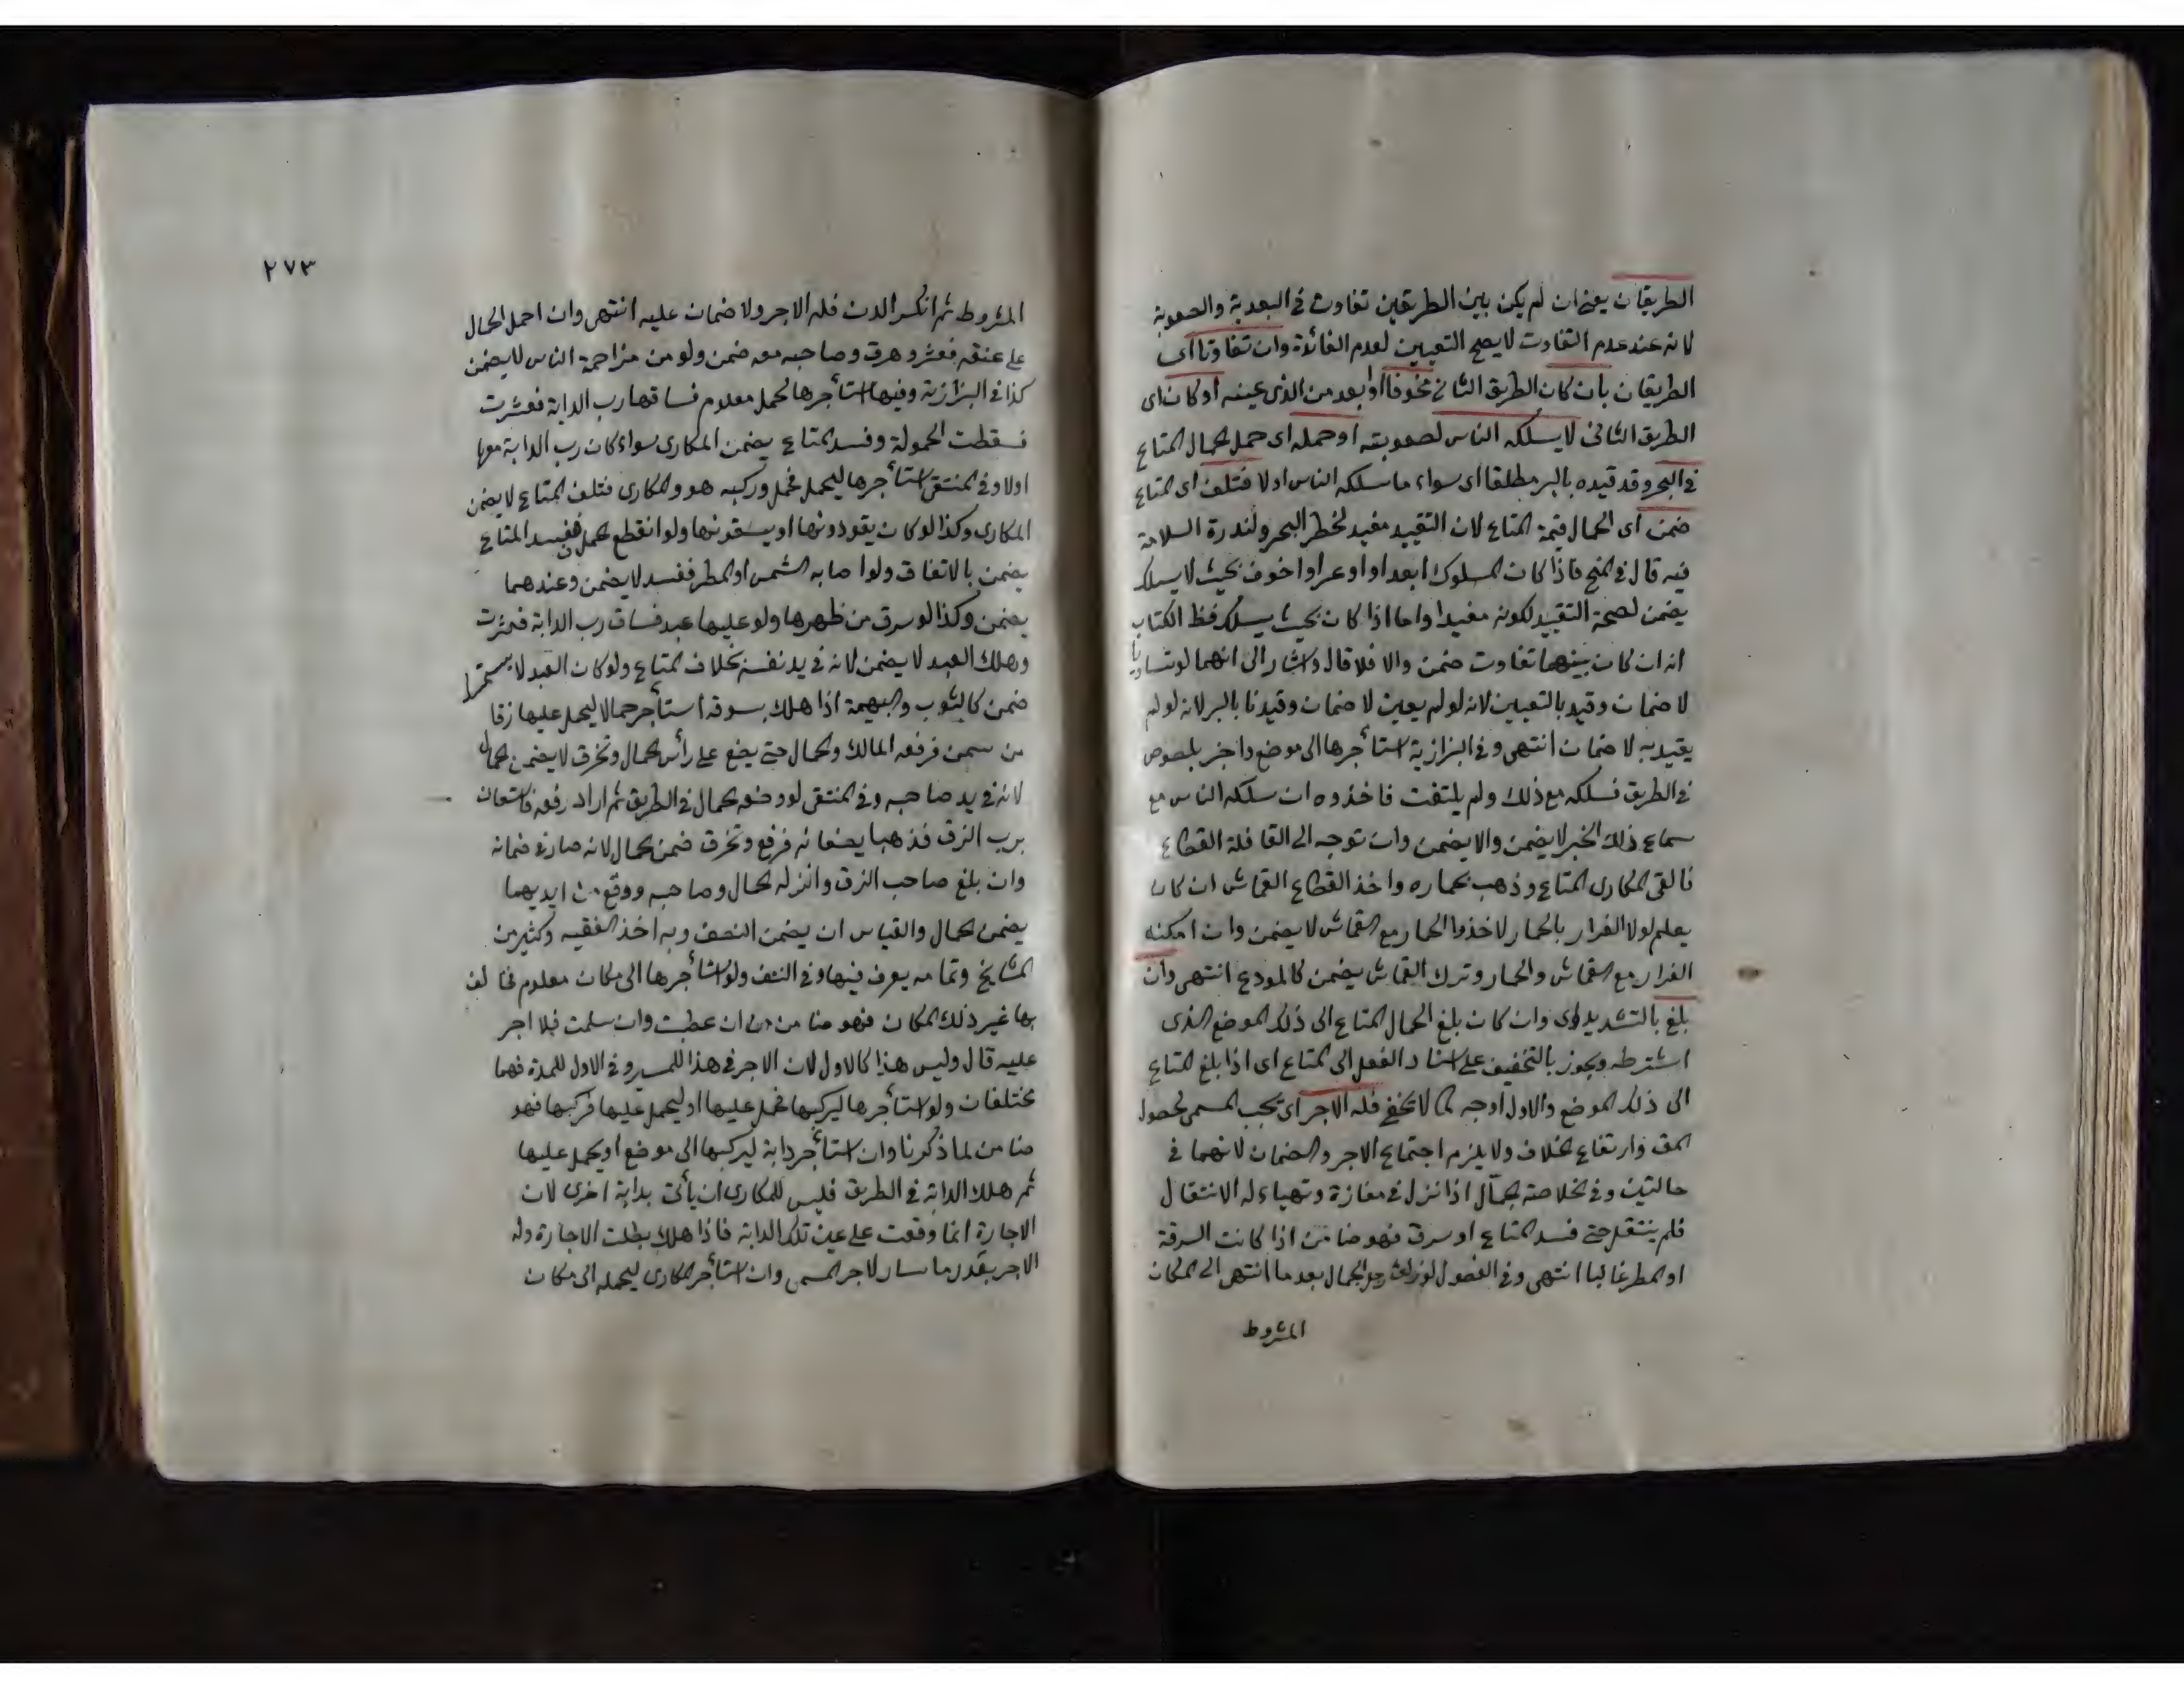 الطريقان يعني ان لم يكن بين الطريقين تفاوت في البعدية والصعوبة
لانه عند عدم التفاوت لا يصح التعيين لعدم الفائدة وان تفاوتا اى
الطريقان بأن كان الطريق الثاني مخوفا أو ابعد من الذى عينه أو كان اى
الطريق الثانى لا يسلكه الناس لصعوبته او حمله اى حمل الحمال المتاع
في البحر وقد قيده بالبر مطلقا اى سواء ما سلكه الناس اولا فتلف اى المتاع
ضمن اى الحمال قيمة المتاع لان التقييد مفيد لخطر البحر ولندرة السلامة
فيه قال في المنح فاذا كان المسلوك ابعد او اوعر او اخوف بحيث لا يسلك
يضمن لصحة التقييد لكونه مفيدا واما اذا كان بحيث يسلك فظ الكتاب
انه ان كان بينهما تفاوت ضمن والا فلا قال واشار الى انهما لو تساويا
لا ضمان وقيد بالتعيين لانه لو لم يعين لا ضمان وقيدنا بالبر لانه لو لم
يقيد به لا ضمان انتهى وفي البزازية استأجرها الى موضع واخبر بلصوص
في الطريق فسلكه مع ذلك ولم يلتفت فاخذوه ان سلكه الناس مع
سماع ذلك الخبر لا يضمن والا يضمن وان توجه الى القافلة القطاع
فالقى المكارى المتاع وذهب بحماره واخذ القطاع القماش ان كان
يعلم لولا الفرار بالحمار لاخذوا الحمار مع القماش لا يضمن وان امكنه
الفرار مع القماش والحمار وترك القماش يضمن كالمودع انتهى وان
بلغ بالتشديد اى وان كان بلغ الحمال المتاع الى ذلك الموضع الذى
اشترطه ويجوز بالتخفيف على اسناد الفعل الى المتاع اى اذا بلغ المتاع
الى ذلك الموضع والاول أوجه كما لا يخفى فله الاجر اى يجب المسمى لحصول
المقـ وارتفاع الخلاف ولا يلزم اجتماع الاجر والضمان لانهما في
حالتين وفي الخلاصة الجمّال اذا نزل في مفازة وتهياء له الانتقال
فلم ينتقل حتى فسد المتاع او سرق فهو ضامن اذا كانت السرقة
او المطر غالبا انتهى وفي الفصول لو رجل الحمال بعد ما انتهى الى المكان
المشروط
٢٧٣
المشروط ثم انكسر الدن فله الاجر ولا ضمان عليه انتهى وان احمل الحمال
على عنقه فعثر وهرق وصاحبه معه ضمن ولو من مزاحمة الناس لا يضمن
كذا في البزازية وفيها استأجرها لحمل معلوم فساقها رب الدابة فعثرت
فسقطت الحمولة وفسد المتاع يضمن المكارى سواء كان رب الدابة معها
اولا وفي المنتقى استأجرها ليحمل فحمل وركبه هو والمكارى فتلف المتاع لا يضمن
المكارى وكذا لو كان يقودونها او يسقونها ولو انقطع الحمل ففسد المتاع
يضمن بالاتفاق ولو اصابه الشمس او المطر ففسد لا يضمن وعندهما
يضمن وكذا لو سرق من ظهرها ولو عليها عبد فساق رب الدابة فعثرت
وهلك العبد لا يضمن لانه في يد نفسه بخلاف المتاع ولو كان العبد لا يستمسك
ضمن كالثوب والبهيمة اذا هلك بسوقه استأجر حمالا ليحمل عليها زقا
من سمن فرفعه المالك والحمال حتى يضع على رأس الحمال وتخرق لا يضمن الحمال
لانه في يد صاحبه وفي المنتقى لو وضعه الحمال في الطريق ثم اراد رفعه فاستعان
برب الزق فذهبا يضعانه فرفع وتخرق ضمن الحمال لانه صار في ضمانه
وان بلغ صاحب الزق وانزله الحمال وصاحبه ووقع من ايديهما
يضمن الحمال والقياس ان يضمن النصف وبه اخذ الفقيه وكثير من
المشايخ وتمامه يعرف فيها وفي النتف ولو استأجرها الى مكان معلوم فخالف
بها غير ذلك المكان فهو ضامن ان عطبت وان سلمت فلا اجر
عليه قال وليس هذا كالاول لان الاجر في هذا للمسير وفي الاول للمدة فهما
مختلفان ولو استأجرها ليركبها فحمل عليها او ليحمل عليها فركبها فهو
ضامن لما ذكرنا وان استأجر دابة ليركبها الى موضع او يحمل عليها
ثم هلك الدابة في الطريق فليس للمكارى ان يأتى بدابة اخرى لان
الاجارة انما وقعت على عين تلك الدابة فاذا هلك بطلت الاجارة وله
الاجر بقدر ما سار لاجر المسمى وان استأجر المكارى ليحمله الى مكان